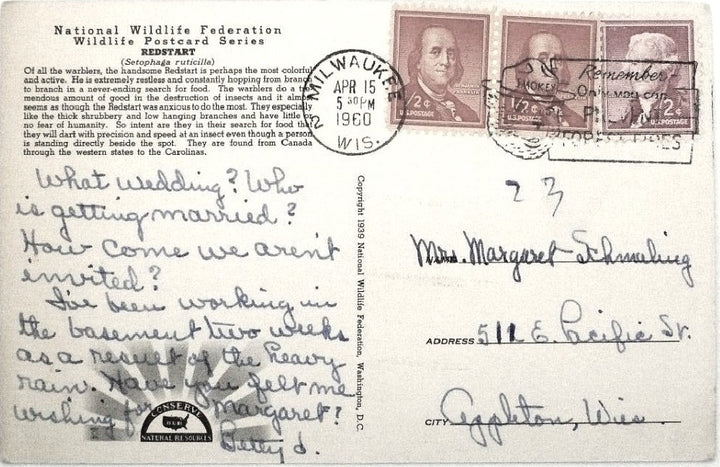 National Wildlife Federation
Wildlife Postcard Series
REDSTART
(Setophaga ruticilla)
Of all the warblers, the handsome Redstart is perhaps the most colorful
and active. He is extremely restless and constantly hopping from branch
to branch in a never-ending search for food. The warblers do a tre-
mendous amount of good in the destruction of insects and it almost
seems as though the Redstart was anxious to do the most. They especially
like the thick shrubbery and low hanging branches and have little or
no fear of humanity. So intent are they in their search for food that
they will dart with precision and speed at an insect even though a person
is standing directly beside the spot. They are found from Canada
through the western states to the Carolinas.
What wedding? Who
is getting married?
How come we aren't
invited?
I've been working in
the basement two weeks
as a result of the heavy
rain. Have you felt me
wishing for Margaret?
Betty J.
CONSERVE
OUR
NATURAL RESOURCES
Copyright 1939 National Wildlife Federation, Washington, D.C.
MILWAUKEE
2
APR 15
5 30 PM
1960
WIS.
1/2¢
U.S. POSTAGE
1/2¢
U.S. POSTAGE
2¢
U.S. POSTAGE
SMOKEY
Remember-
Only you can
FOREST FIRES
23
Mrs. Margaret Schmaling
ADDRESS 511 E. Pacific St.
CITY Appleton, Wis.